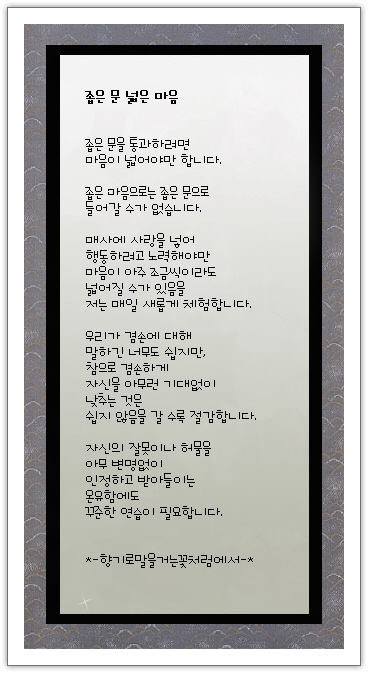 좁은 문 넓은 마음
좁은 문을 통과하려면
마음이 넓어야만 합니다.
좁은 마음으로는 좁은 문으로
들어갈 수가 없습니다.
매사에 사랑을 넣어
행동하려고 노력해야만
마음이 아주 조금씩이라도
넓어질 수가 있음을
저는 매일 새롭게 체험합니다.
우리가 겸손에 대해
말하긴 너무도 쉽지만,
참으로 겸손하게
자신을 아무런 기대없이
낮추는 것은
쉽지 않음을 갈 수록 절감합니다.
자신의 잘못이나 허물을
아무 변명없이
인정하고 받아들이는
온유함에도
꾸준한 연습이 필요합니다.
*-향기로말을거는꽃처럼에서-*